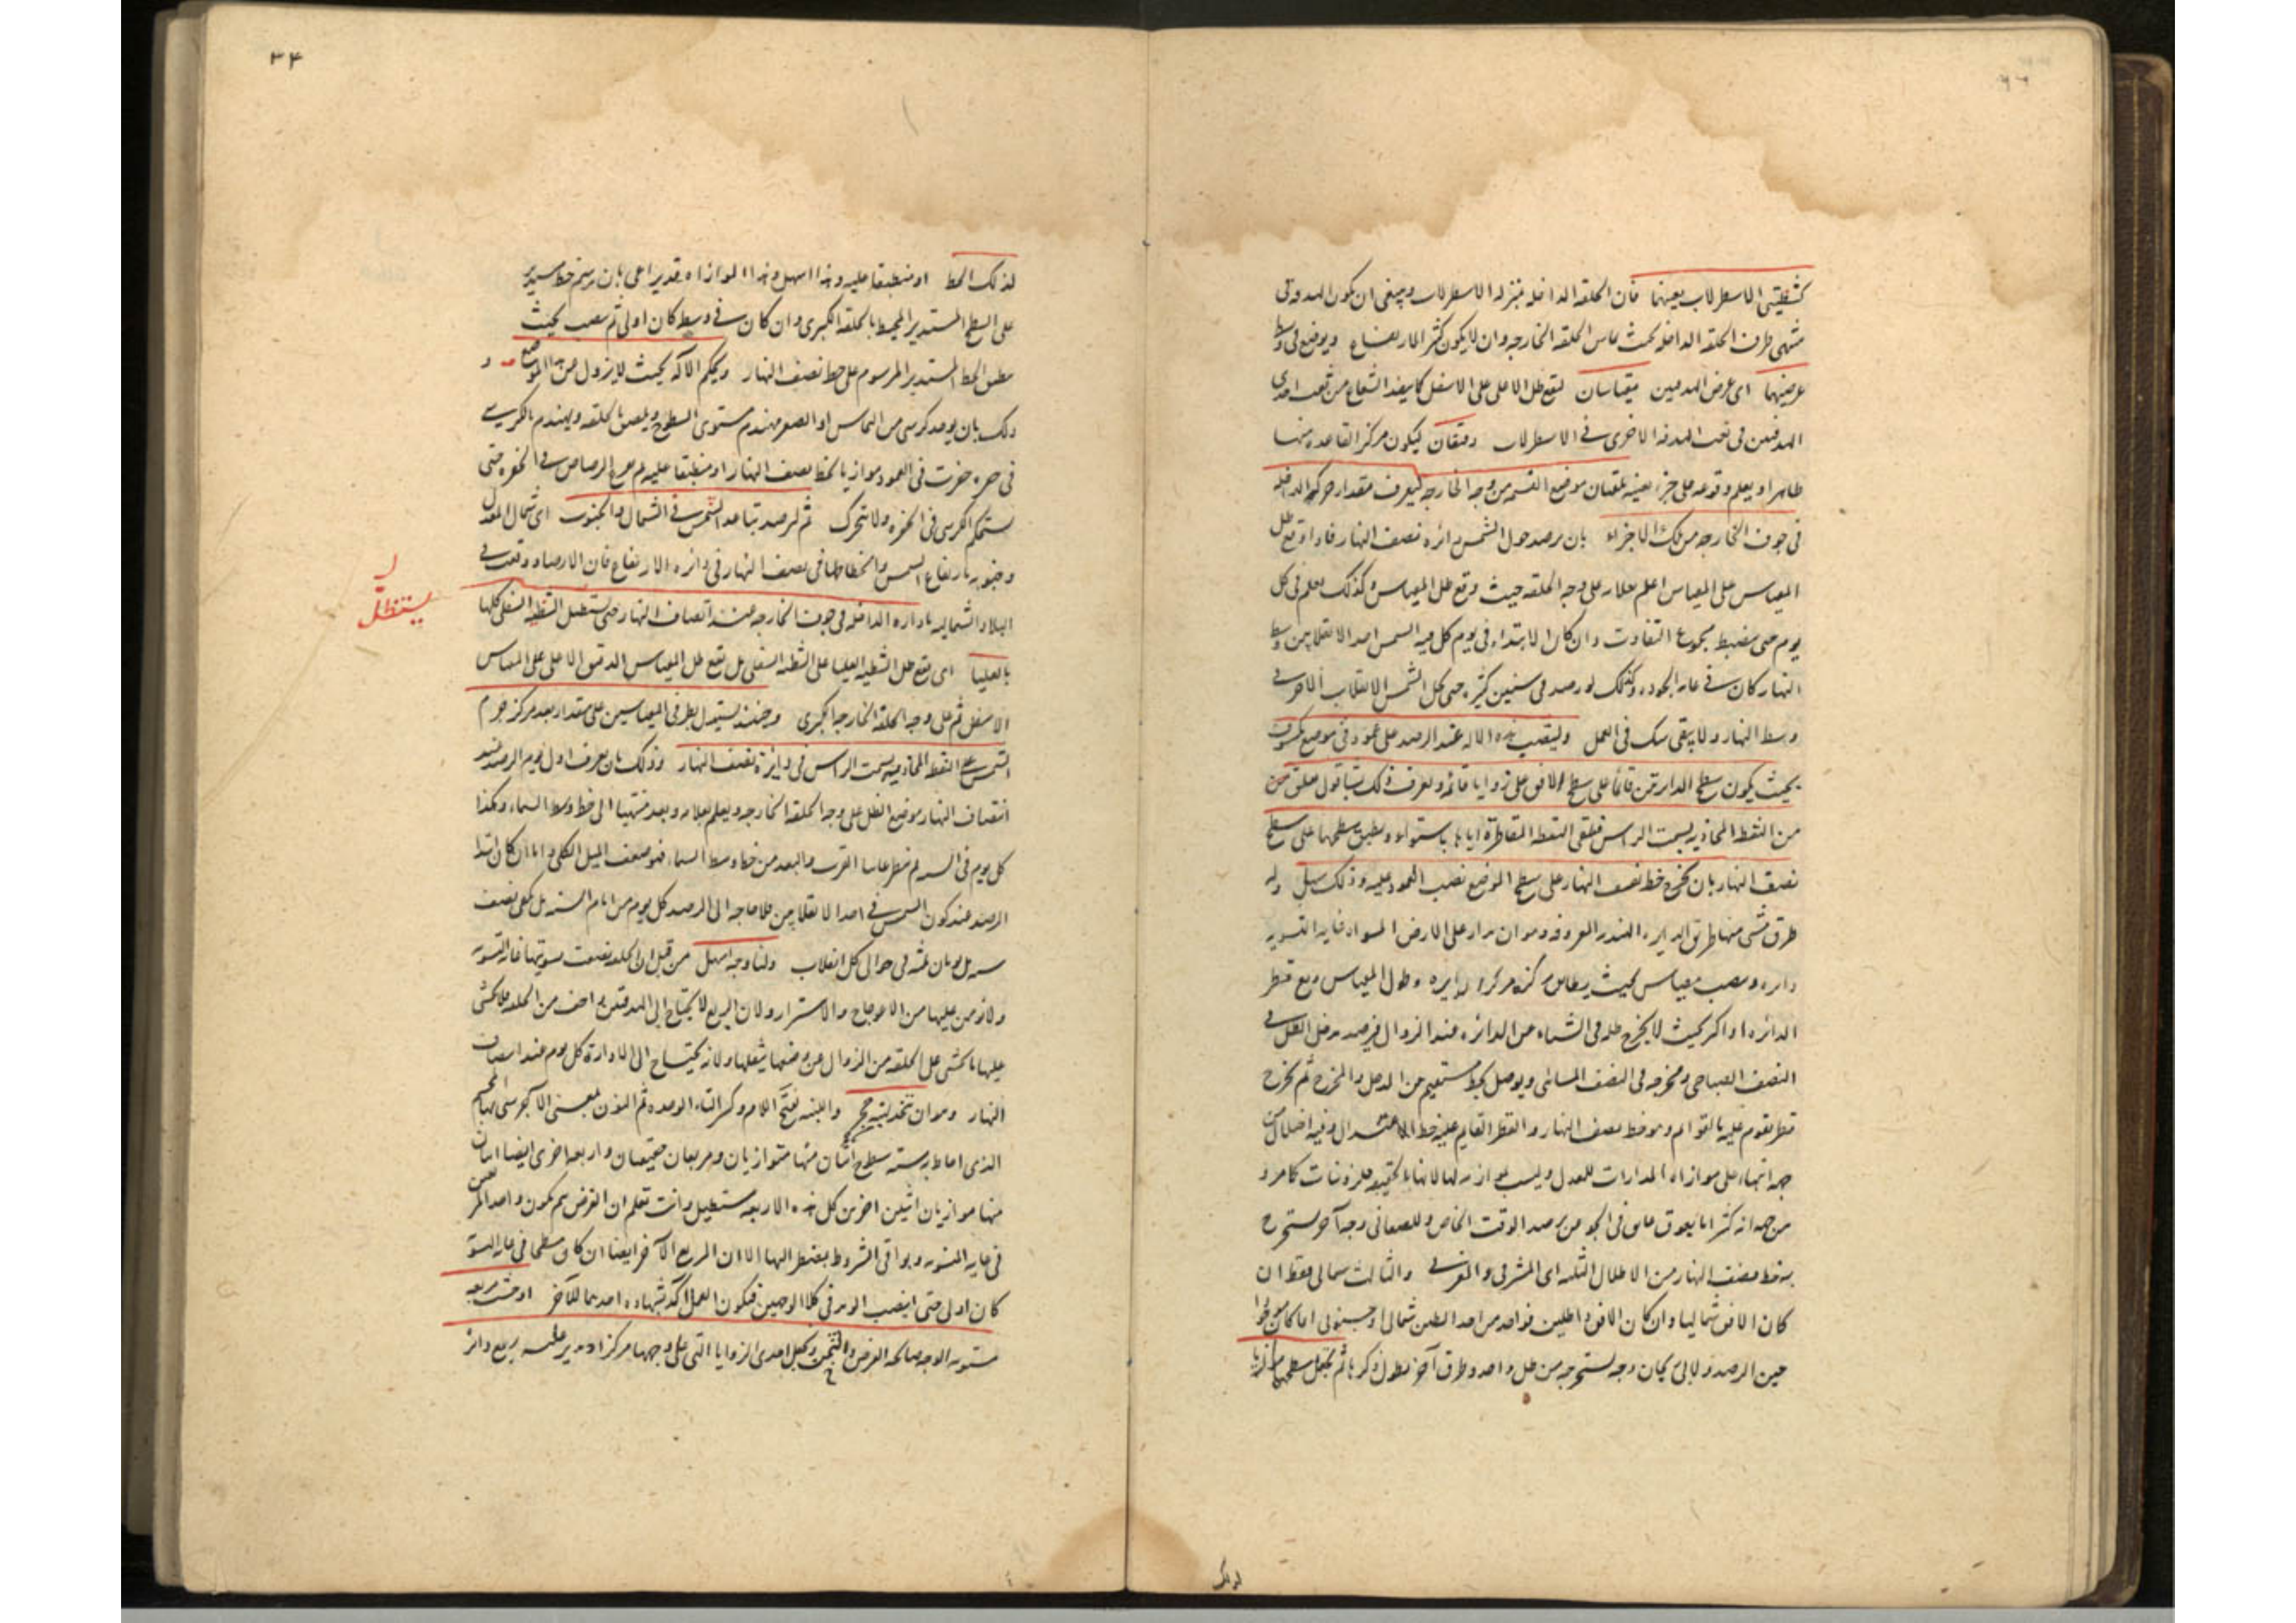 كشظيتي الاسطرلاب بعينهما فان الحلقه الداخله بمنزله الاسطرلاب وينبغي ان يكون الهدفه في
منتهى طرف الحلقه الداخله بحيث يماس الحلقه الخارجه وان لا يكون كثير الارتفاع ويوضع في وسط
عرضيهما اى عرض الهدفين مقياسان ليقع ظل الاعلى على الاسفل كما ينفذ الشعاع من ثقب احدى
الهدفتين في ثقب الهدفه الاخرى في الاسطرلاب دقيقان ليكون مركز القاعده منها
ظاهرا ويعلم وقوعه على جزء بعينه يلقيان موضع القسمه من وجه الخارجه ليعرف مقدار حركه الداخله
في جوف الخارجه من تلك الاجزاء بان يرصد حول الشمس دائره نصف النهار فاذا وقع ظل
المقياس على المقياس اعلم علامه على وجه الحلقه حيث وقع ظل المقياس وكذلك يعلم في كل
يوم حتى ينضبط مجموع التفاوت وان كان الابتداء في يوم تحل فيه الشمس احد الانقلابين وسط
النهار كان في غايه الجوده وكذلك لو رصد في سنين كثيره حتى تحل الشمس الانقلاب الاخر في
وسط النهار ولا يبقى شك في العمل ولينصب هذه الاله عند الرصد على عمود في موضع مكشوف
بحيث يكون سطح الدائرتين قائما على سطح الافق على زوايا قائمه ويعرف ذلك بشاقول معلق من
من النقطه المحاذيه لسمت الراس فيلقى النقطه المقاطرة اياها باستواء ويطبق سطحها على سطح
نصف النهار بان يخرج خط نصف النهار على سطح الموضع نصب العمود عليه وذلك سهل وله
طرق شتى منها طريق الدايره الهنديه المعروفه وهو ان يدار على الارض المسواه غايه التسويه
دايره وينصب مقياس بحيث يطابق مركزه مركز الدايره وطول المقياس ربع قطر
الدائره او اكثر بحيث لا يخرج ظله في الشتاء عن الدائره عند الزوال فيرصد مدخل الظل في
النصف الصباحى ومخرجه في النصف المسائى ويوصل بخط مستقيم من المدخل والمخرج ثم يخرج
قطر يقوم عليه بالقوائم وهو خط نصف النهار والقطر القايم عليه خط الاعتدال وفيه اختلال من
جهة ابتنائه على موازاه المدارات للمعدل وليست بموازيه لها لانها بالحقيقه حلزونيات كما مر و
من جهه انه كثيرا ما يعوق عائق في الجو من رصد الوقت الخاص وللصغانى وجه آخر يستخرج
به خط نصف النهار من الاظلال الثلثه اى المشرقى والمغربى والثالث شمالى فقط ان
كان الافق شماليا وان كان الافق ذا ظلين فواحد من احد الظلين شمالى او جنوبى اما كان موجودا
حين الرصد ولابى ريحان وجه يستخرجه من ظل واحد وطرق آخر يطول ذكرها ثم يجعل سطحها موازيا
لذلك
٣٤
لذلك الخط او منطبقا عليه وهذا اسهل وهذا الموازاه تقديرا اعنى بان يرسم خط مستدير
على السطح المستدير المحيط بالحلقه الكبرى وان كان في وسطه كان اولى ثم ينصب بحيث
ينطبق الخط المستدير المرسوم على خط نصف النهار ويحكم الآله بحيث لا يزول عن هذا الموضع و
ذلك بان يوخذ كرسى من النحاس او الصفر مهندم مستوى السطوح ويلصق بالحلقه ويهندم بالكرسى
في حفره حفرت في العمود موازيا لخط نصف النهار او منطبقا عليه ثم يفرغ الرصاص في الحفره حتى
يستحكم الكرسى في الحفره ولا يتحرك ثم ليرصد تباعد الشمس في الشمال والجنوب اى شمال المعدل
وجنوبه بارتفاع الشمس وانحطاطها في نصف النهار في دائره الارتفاع فان الارصاد وقعت في
البلاد الشماليه بادارة الداخله في جوف الخارجه عند انتصاف النهار حتى يستظل الشظيه السفلى كلها
يستظلّ
بالعليا اى يقع ظل الشظيه العليا على الشظيه السفلى بل يقع ظل المقياس الدقيق الاعلى على المقياس
الاسفل ثم على وجه الحلقه الخارجه الكبرى وحينئذ يستدل بطرفى المقياسين على مقدار بعد مركز جرم
الشمس عن النقطه المحاذيه لسمت الراس في دايرة نصف النهار وذلك بان يعرف اول يوم الرصد عند
انتصاف النهار موضع الظل على وجه الحلقه الخارجه ويعلم بعلامه وبعد منتهيا الى خط وسط السماء وهكذا
كل يوم في السنه ثم ينظر غايتا القرب والبعد من خط وسط السماء فنصفه الميل الكلى واما ان كان ابتدا
الرصد عند كون الشمس في احد الانقلابين فلا حاجه الى الرصد كل يوم من ايام السنه بل يكفى نصف
سنه بل يومان ثلثه في حوالى كل انقلاب ولنا وجه اسهل من قبل ان الحلقه يصعب تسويتها غايه التسويه
ولا يومن عليها من الاعوجاج والاستدارة ولان الربع لا يحتاج الى الهدفتين واخف من الحلقه فلا يخشى
عليها ما يخشى على الحلقه من الزوال عن وضعها بثقلها ولانه يحتاج الى الادارة كل يوم عند انتصاف
النهار وهو ان يتخذ لبنه حجر واللبنه بفتح اللام وكسر التاء الموحده ثم النون بمعنى الآجر سمى بها الجسم
الذى احاط به سته سطوح اثنان منها متوازيان ومربعان حقيقيان واربعه اخرى ايضا اثنان
منها موازيان اثنين اخرين كل هذه الاربعه مستطيل وانت تعلم ان الغرض يتم بكون واحد المربعين
في غايه التسويه وبواقى الشروط يضطر اليها الا ان المربع الآخر ايضا ان كان سطحا في غايه التسويه
كان اولى حتى ينصب الوتد في كلا الوجهين فيكون العمل آكد بشهاده احدهما للآخر او خشب مربعه
مستويه الوجه صالحه العرض والثخن ويجعل احدى الزوايا التى على وجهها مركزا ويدير عليه بربع دائره